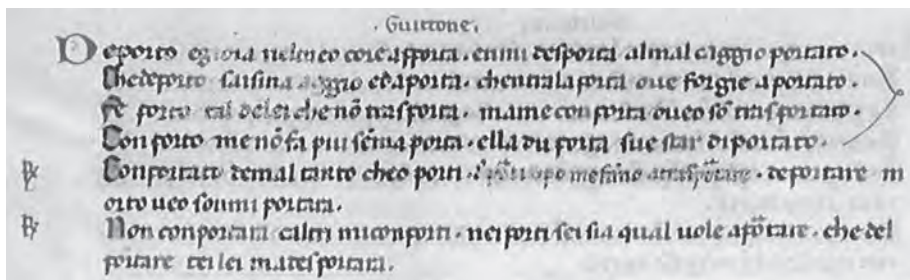 . Guittone.
Deporto egioia nelmeo core apporta. emmi desporta almal caggio portato.
Che deporto saisina aggio edaporta. chentrala porta oue forgie aportato.
Fe porto tal delei che nō trasporta. mame con porta oueo sō trasportato.
Con forto me nō fa piu sēnia porta. ella du porta sue star diportato.
Conportato demal tanto cheo porti. deportare m
orto ueo sonmi portata.
Non conportara caltri miconporti. nei porti sei sia qual uole aportare. che del
portare dei lei madesportara.